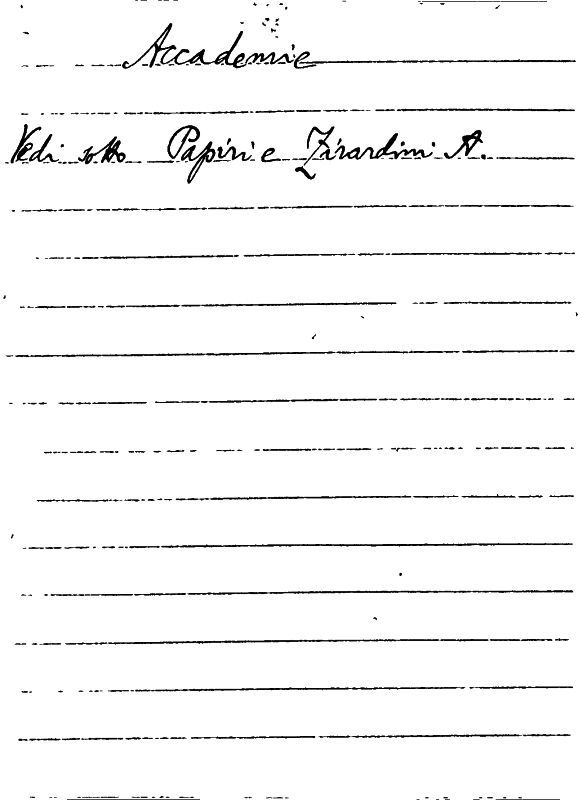 Accademie
Vedi sotto Papiri e Zirardini A.